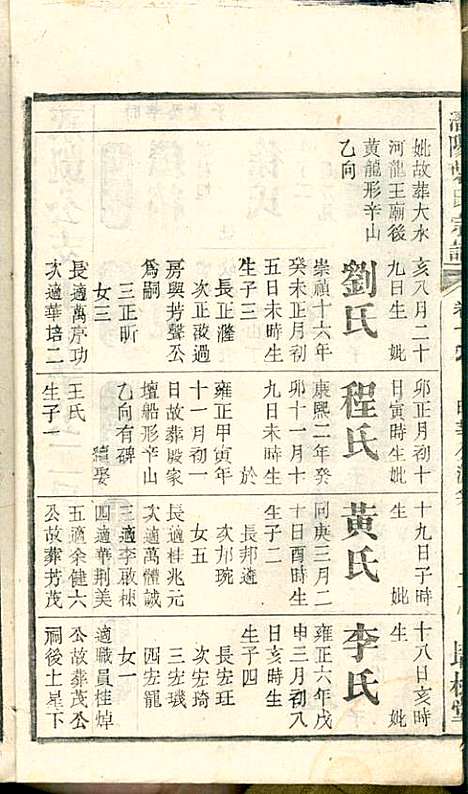 妣故葬大水
河龍王廟後
黃龍形辛山
乙向
亥八月二十
九日生 妣
劉氏
崇禎十六年
癸未正月初
五日未時生
生子三
長正滙
次正汝過
房與芳聲公
爲嗣
三正昕
女三
長適萬序功
次適華培二
卯正月初十
日寅時生妣
程氏
康熙二年癸
卯十一月十
九日未時生
於
雍正甲寅年
十一月初一
日故葬殿家
壇船形辛山
乙向有碑
續娶
王氏
生子一
十九日子時
生 妣
黃氏
同庚三月二
十日酉時生
生子二
長邦適
次邦琬
女五
長適桂兆元
次適萬體誠
三適李啟棟
四適華荆美
五適余健六
公故葬芳茂
十八日亥時
生 妣
李氏
雍正六年戊
申三月初八
日亥時生
生子四
長安玨
次安琦
三安㻽
四安寵
女一
適職員桂焯
公故葬茂公
祠後土星下